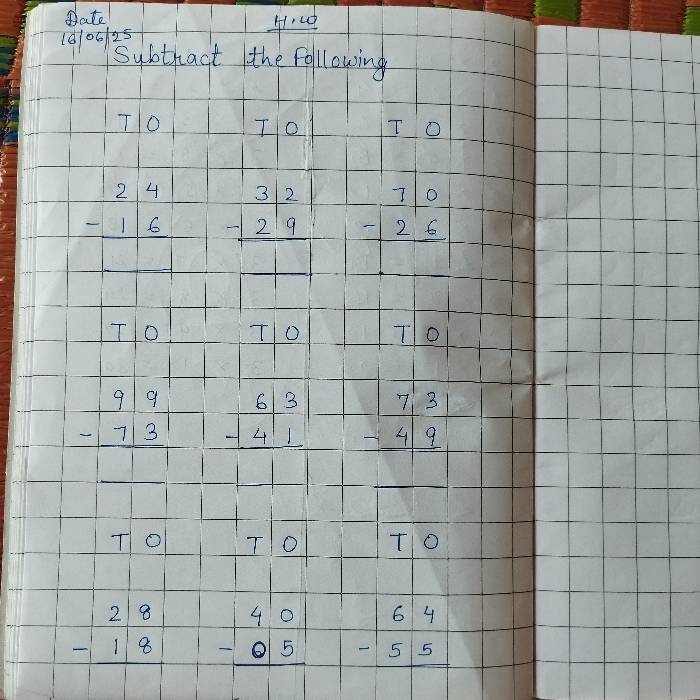 Date H.W
16/06/25
Subtract the following
T O T O T O
2 4 3 2 7 0
- 1 6 - 2 9 - 2 6
T O T O T O
9 9 6 3 7 3
- 7 3 - 4 1 - 4 9
T O T O T O
2 8 4 0 6 4
- 1 8 - 0 5 - 5 5